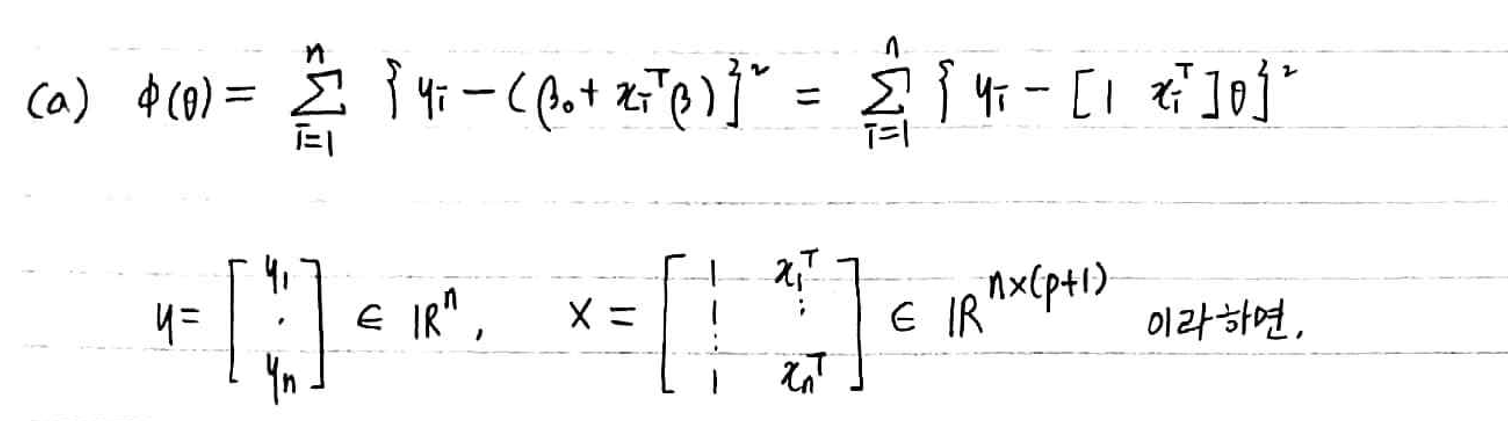 (a) φ(θ) = Σ_{i=1}^{n} {y_i − (β₀ + x_i^T β)}² = Σ_{i=1}^{n} {y_i − [1 x_i^T]θ}²
y = [y₁ ⋮ y_n] ∈ ℝ^n, X = [1 x₁^T; 1 ⋮; ⋮; 1 x_n^T] ∈ ℝ^{n×(p+1)} 이라하면,